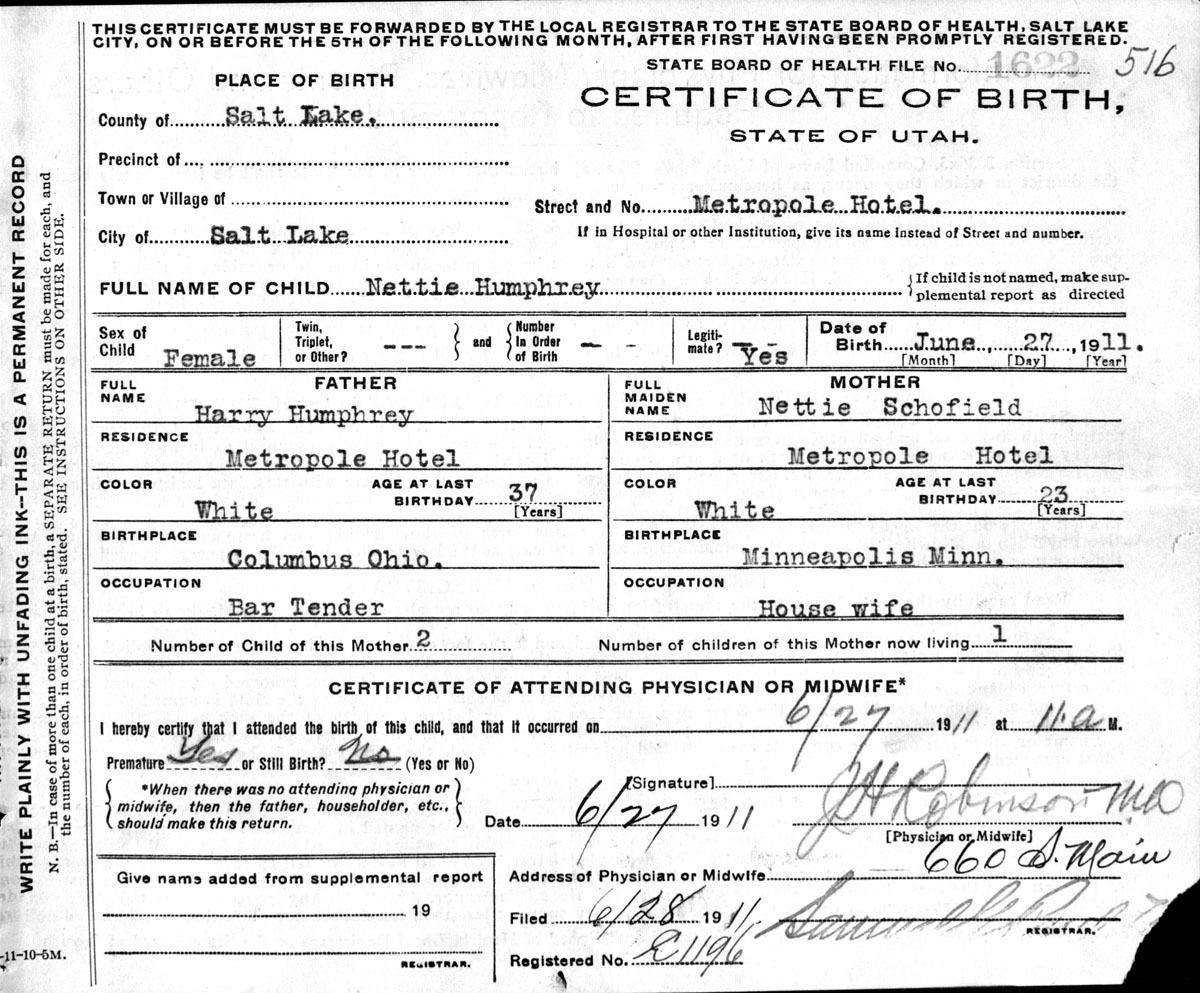 THIS CERTIFICATE MUST BE FORWARDED BY THE LOCAL REGISTRAR TO THE STATE BOARD OF HEALTH, SALT LAKE
CITY, ON OR BEFORE THE 5TH OF THE FOLLOWING MONTH, AFTER FIRST HAVING BEEN PROMPTLY REGISTERED.
STATE BOARD OF HEALTH FILE No. 1622 516
PLACE OF BIRTH
CERTIFICATE OF BIRTH,
STATE OF UTAH.
County of Salt Lake.
Precinct of
Town or Village of
Street and No. Metropole Hotel.
City of Salt Lake
If in Hospital or other Institution, give its name instead of Street and number.
FULL NAME OF CHILD Nettie Humphrey
{If child is not named, make sup-
plemental report as directed
Sex of Child Female
Twin, Triplet, or Other? ---
and
Number In Order of Birth - -
Legiti-mate? Yes
Date of Birth June, 27, 1911.
[Month] [Day] [Year]
FATHER
FULL NAME Harry Humphrey
RESIDENCE
Metropole Hotel
COLOR White
AGE AT LAST BIRTHDAY 37
[Years]
BIRTHPLACE
Columbus Ohio.
OCCUPATION
Bar Tender
MOTHER
FULL MAIDEN NAME Nettie Schofield
RESIDENCE
Metropole Hotel
COLOR White
AGE AT LAST BIRTHDAY 23
[Years]
BIRTHPLACE
Minneapolis Minn.
OCCUPATION
House wife
Number of Child of this Mother 2
Number of children of this Mother now living 1
CERTIFICATE OF ATTENDING PHYSICIAN OR MIDWIFE*
I hereby certify that I attended the birth of this child, and that it occurred on 6/27 1911 at 11.a M.
Premature Yes or Still Birth? No (Yes or No)
*When there was no attending physician or
midwife, then the father, householder, etc.,
should make this return.
[Signature] J H Robinson MD
Date 6/27 1911
[Physician or Midwife]
Address of Physician or Midwife 660 S. Main
Give name added from supplemental report
19
REGISTRAR.
Filed 6/28 1911
REGISTRAR.
Registered No. C1196
-11-10-5M.
WRITE PLAINLY WITH UNFADING INK--THIS IS A PERMANENT RECORD
N. B.--In case of more than one child at a birth, a SEPARATE RETURN must be made for each, and
the number of each, in order of birth, stated. SEE INSTRUCTIONS ON OTHER SIDE.